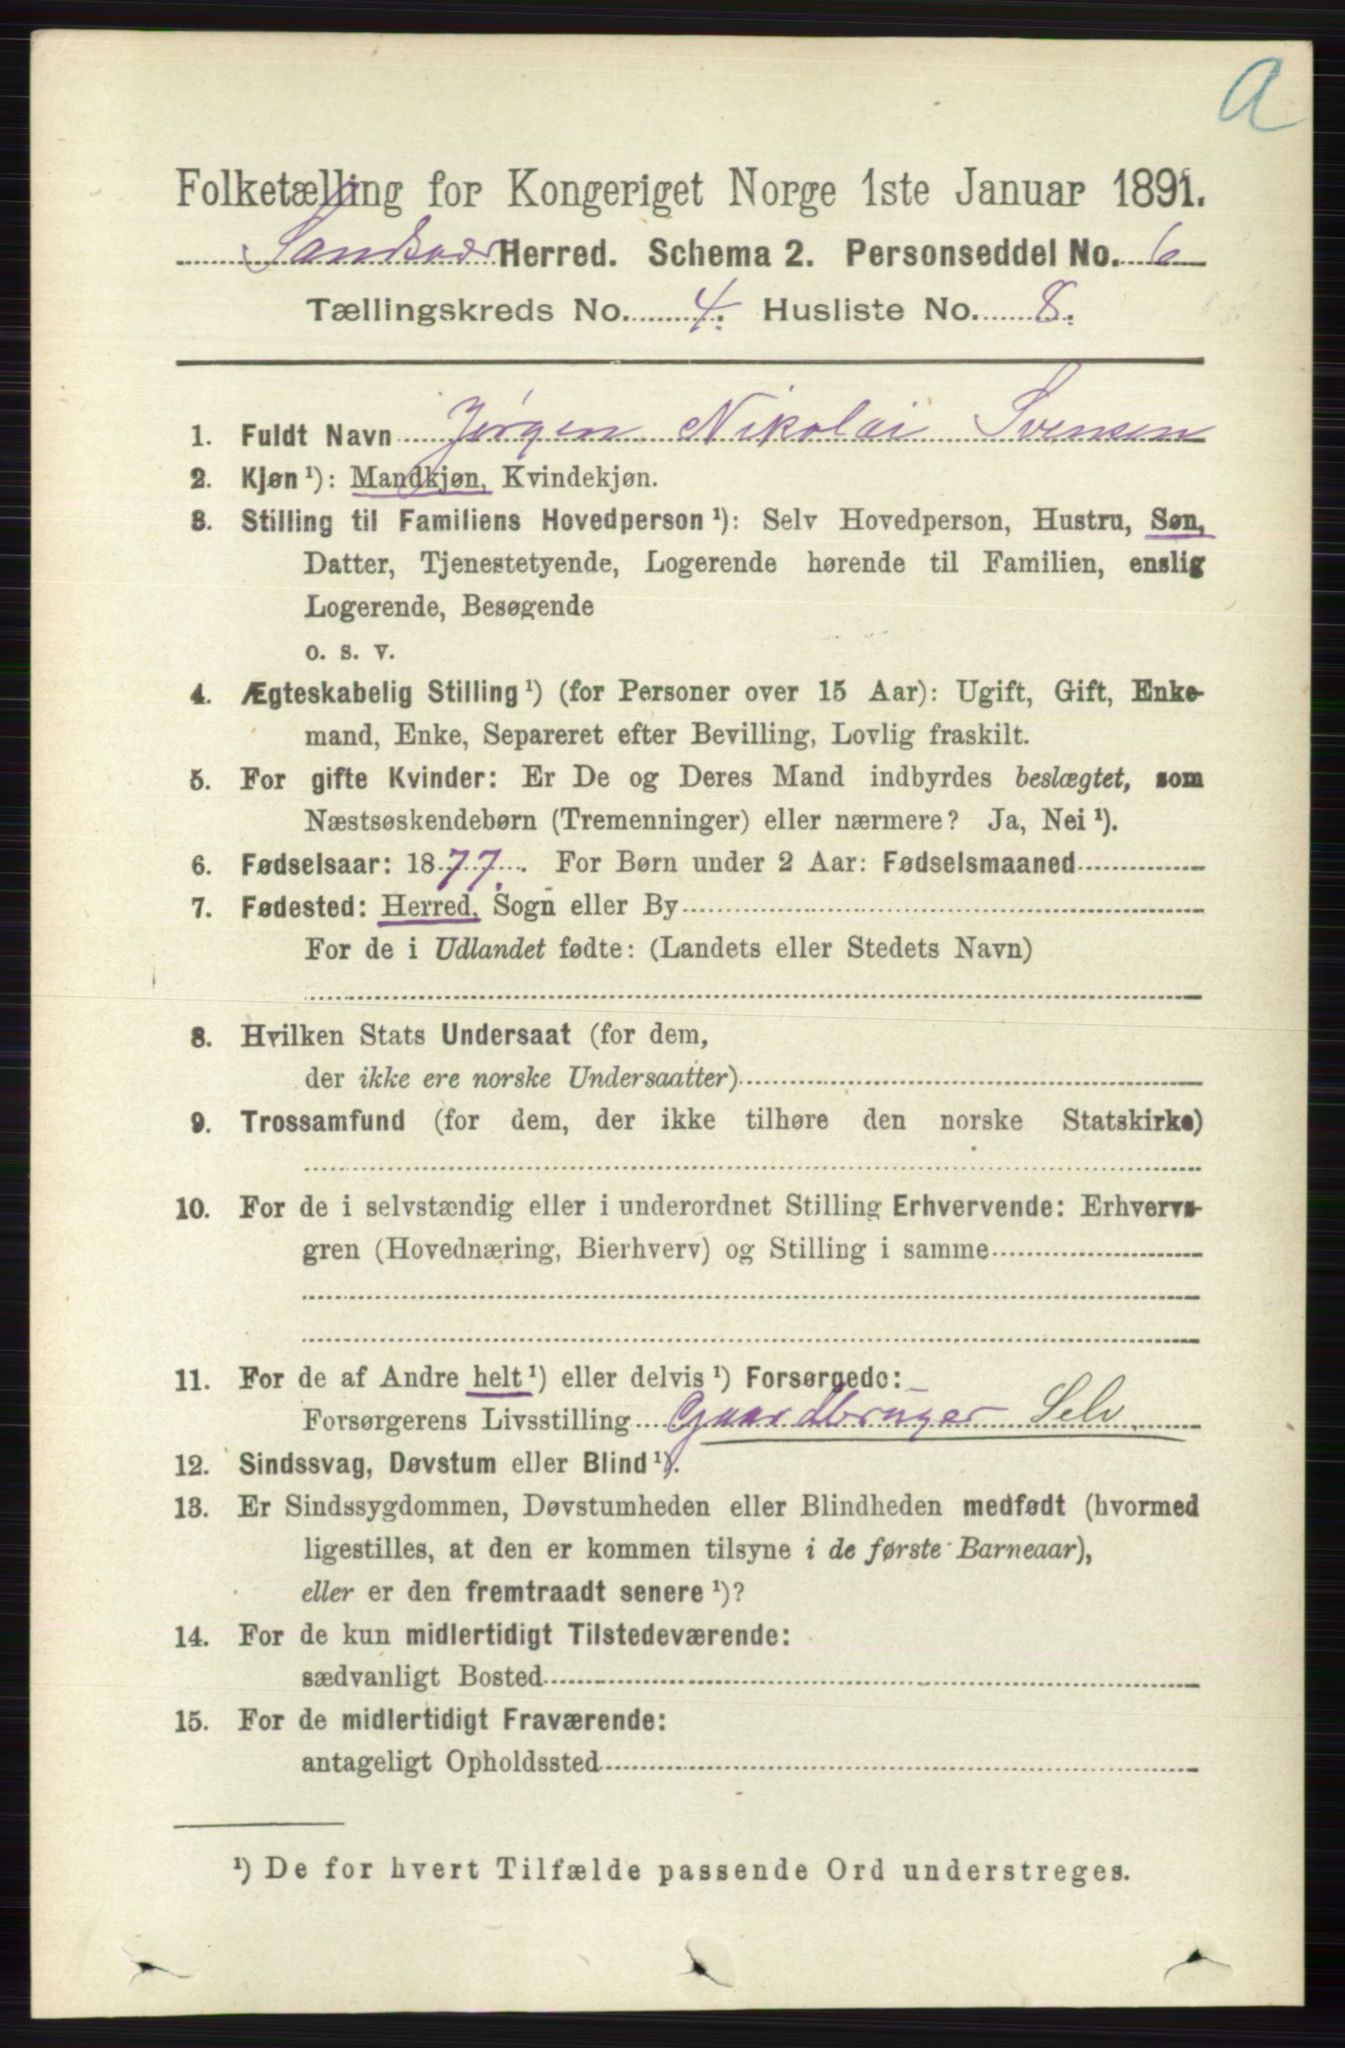 a
Folketælling for Kongeriget Norge 1ste Januar 1891.
Sandsvær Herred. Schema 2. Personseddel No. 6
Tællingskreds No. 4. Husliste No. 8.
1. Fuldt Navn Jørgen Nikolai Svensen
2. Kjøn ¹): Mandkjøn, Kvindekjøn.
3. Stilling til Familiens Hovedperson ¹): Selv Hovedperson, Hustru, Søn,
Datter, Tjenestetyende, Logerende hørende til Familien, enslig
Logerende, Besøgende
o. s. v.
4. Ægteskabelig Stilling ¹) (for Personer over 15 Aar): Ugift, Gift, Enke-
mand, Enke, Separeret efter Bevilling, Lovlig fraskilt.
5. For gifte Kvinder: Er De og Deres Mand indbyrdes beslægtet, som
Næstsøskendebørn (Tremenninger) eller nærmere? Ja, Nei ¹).
6. Fødselsaar: 1877. For Børn under 2 Aar: Fødselsmaaned
7. Fødested: Herred, Sogn eller By
For de i Udlandet fødte: (Landets eller Stedets Navn)
8. Hvilken Stats Undersaat (for dem,
der ikke ere norske Undersaatter)
9. Trossamfund (for dem, der ikke tilhøre den norske Statskirke)
10. For de i selvstændig eller i underordnet Stilling Erhvervende: Erhvervs-
gren (Hovednæring, Bierhverv) og Stilling i samme
11. For de af Andre helt ¹) eller delvis ¹) Forsørgede:
Forsørgerens Livsstilling Gaardbruger Selv
12. Sindssvag, Døvstum eller Blind ¹).
13. Er Sindssygdommen, Døvstumheden eller Blindheden medfødt (hvormed
ligestilles, at den er kommen tilsyne i de første Barneaar),
eller er den fremtraadt senere ¹)?
14. For de kun midlertidigt Tilstedeværende:
sædvanligt Bosted
15. For de midlertidigt Fraværende:
antageligt Opholdssted
¹) De for hvert Tilfælde passende Ord understreges.